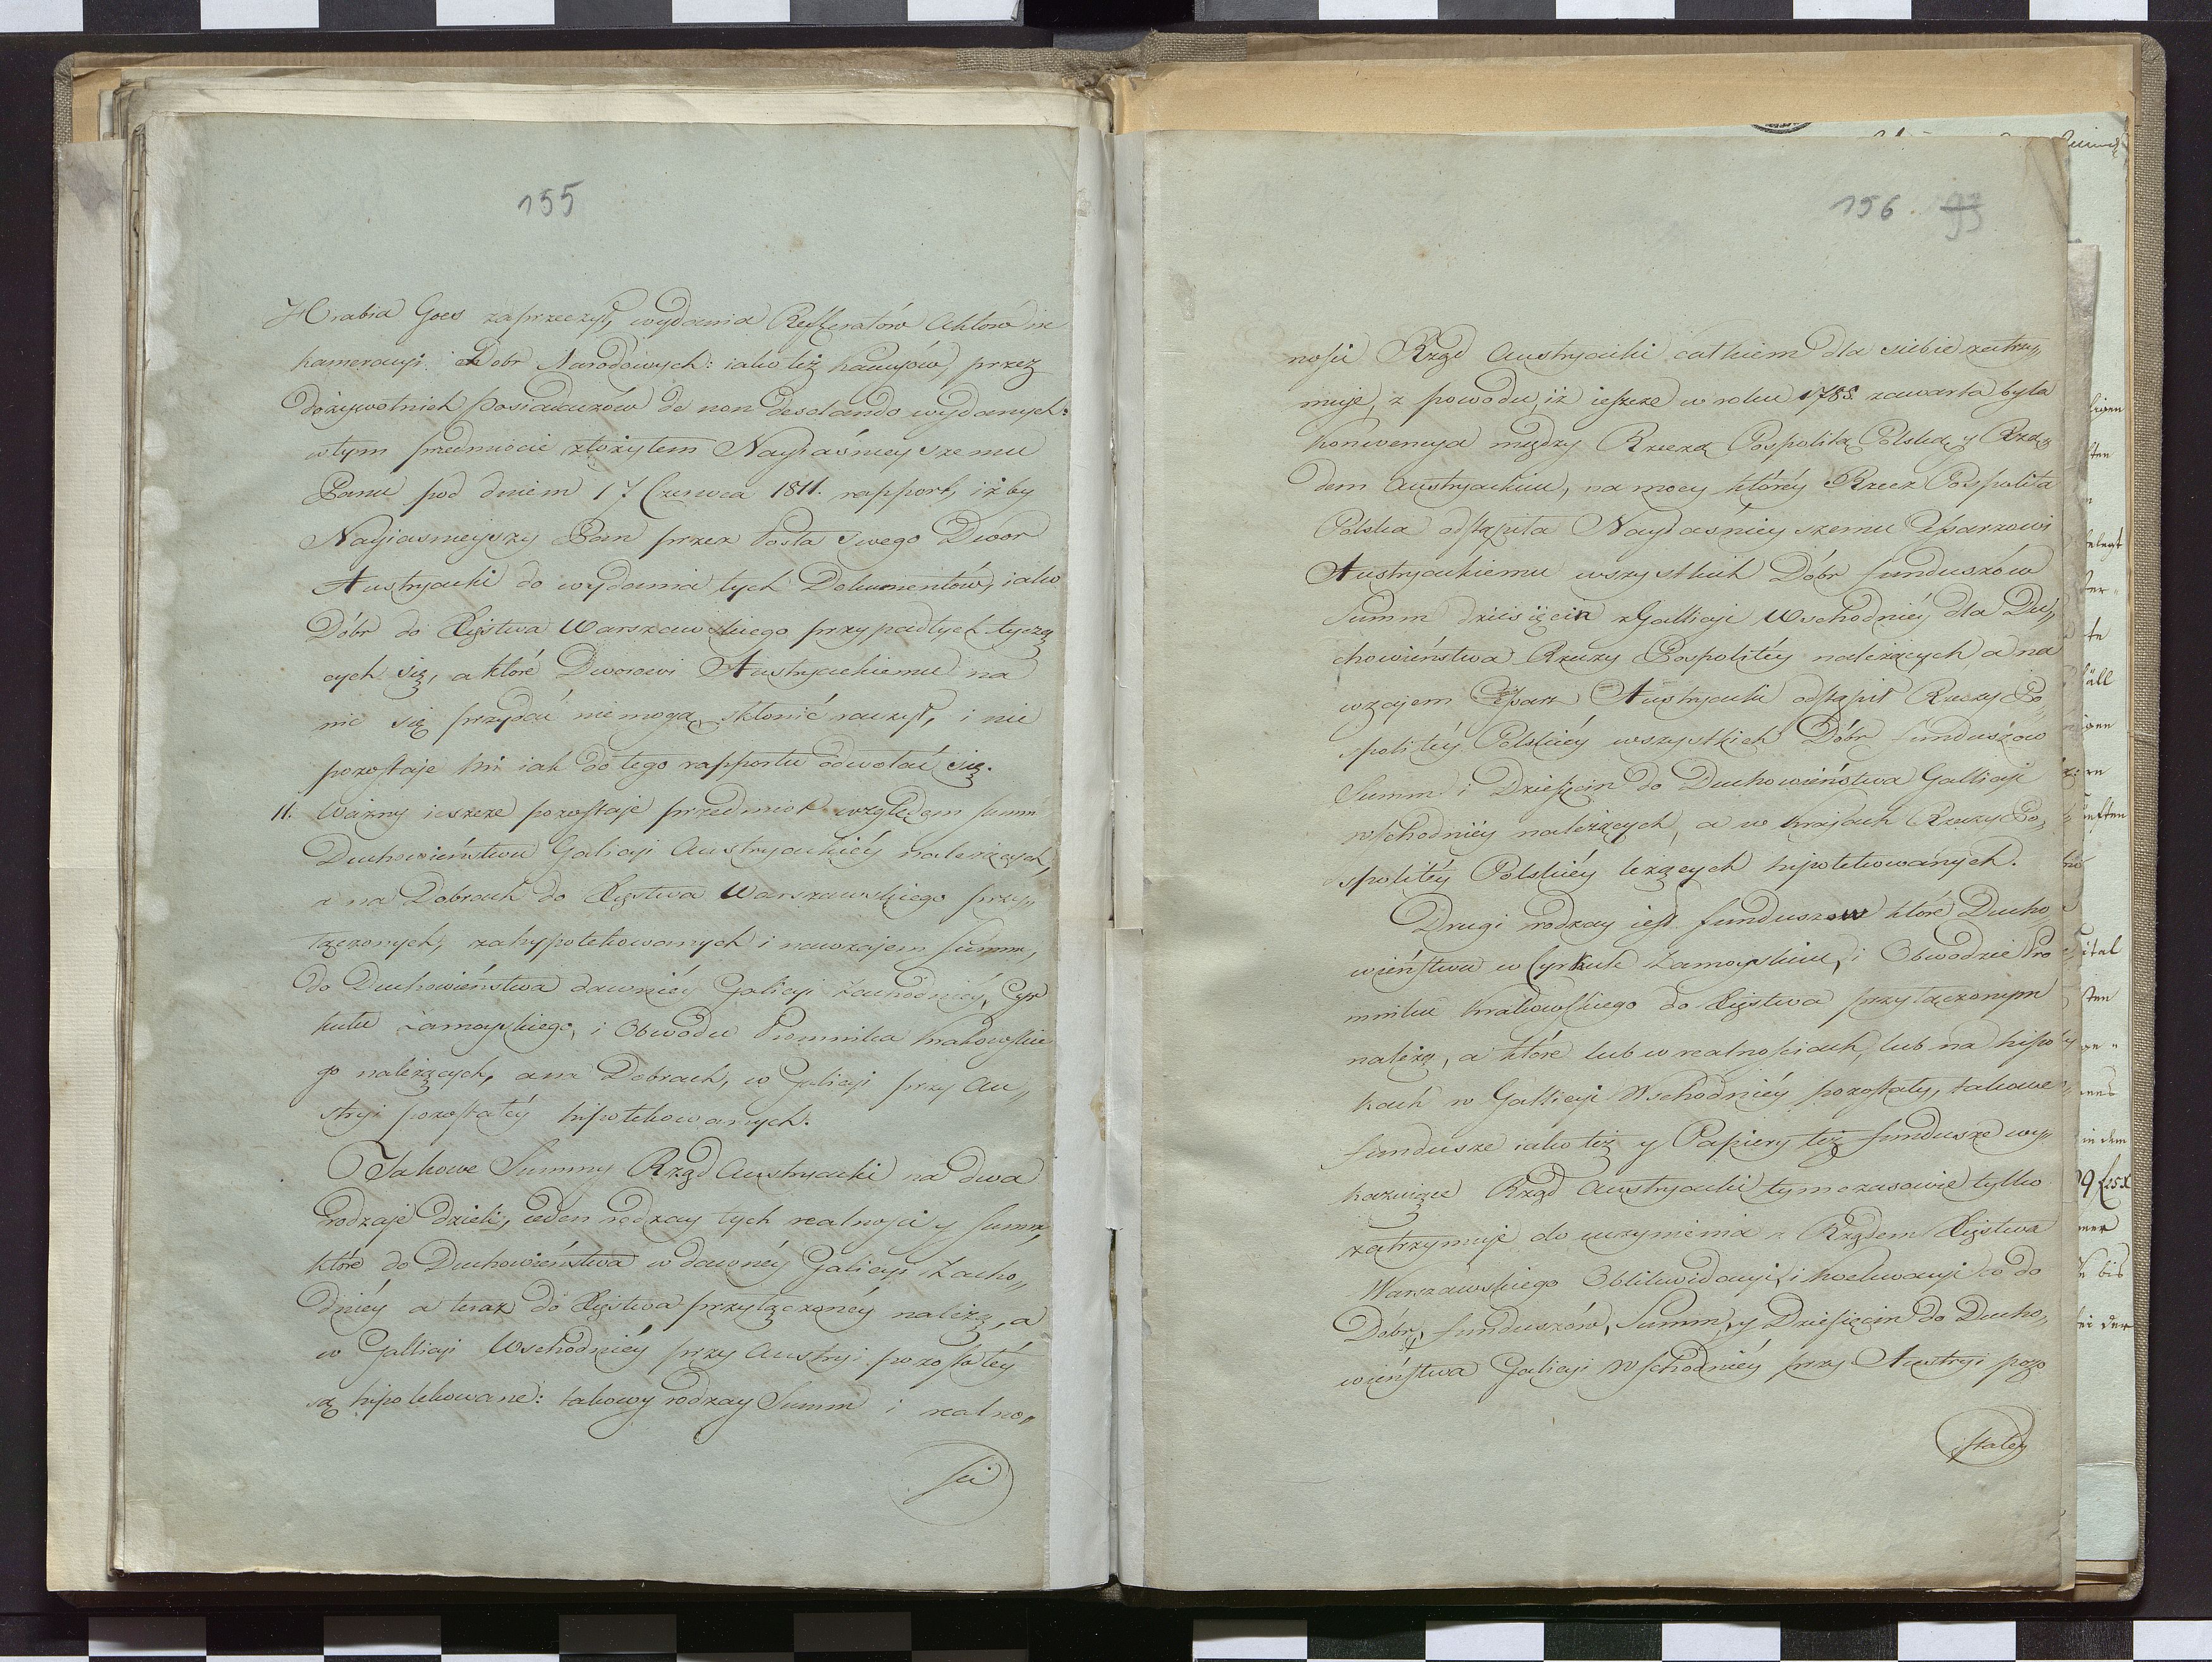 155
Hrabia Goes zaprzeczył, wydania Refferatów Aktów in
kameracyi Dobr Narodowych: iako też kaucyów, przez
dożywotnich posiadaczów de non desolando wydanych:
w tym przedmiocie złożyłem Nayiaśnieyszemu
Panu pod dniem 17 Czerwca 1811. rapport, iżby
Nayiasnieyszy Pan przez Posła swego Dwor
Austryacki do wydania tych Dokumentów, iako
Dóbr do Xięstwa Warszawskiego przypadłych tyczą
cych się, a które Dworowi Austryackiemu na
nic się przydać nie mogą, skłonić raczył, i nie
pozostaje mi iak do tego rapportu odwołać się.
11. Ważny ieszcze pozostaje przedmiot względem summ
Duchowieństwu Galicyi Austryackiéy należących,
a na Dobrach do Xięstwa Warszawskiego przy„
łączonych, zahypotekowanych i nawzajem summ,
do Duchowieństwa dawniéy Galicyi Zachodniéy, Cyr
kułu Zamoyskiego, i Obwodu Promnika Krakowskie
go należących, a na Dobrach, w Galicyi przy Au„
stryi pozostałéy hipotekowanych.
Takowe Summy Rząd Austryacki na dwa
rodzaje dzieli, ieden rodzay tych realności y summ,
które do Duchowieństwa w dawnéy Galicyi Zacho„
dniéy a teraz do Xięstwa przyłączonéy należą, a
w Gallicyi Wschodniéy przy Austryi pozostałéy
są hipotekowane: takowy rodzay Summ i realno„
ści
156. 93
ności Rząd Austryacki całkiem dla siebie zatrzy„
muje, z powodu, iż ieszcze w roku 1785. zawarta była
Konwencya między Rzeczą Pospolitą Polską y Rzą„
dem Austryackim, na mocy któréy Rzecz Pospolita
Polska odstąpiła Nayiaśnieyszemu Cesarzowi
Austryackiemu wszystkich Dóbr funduszów
Summ dziesięcin z Gallicyi Wschodniéy dla Du„
chowieństwa Rzeczy Pospolitéy należących, a na
wzajem Cesarz Austryacki odstąpił Rzeczy Po„
spolitéy Polskiéy wszystkich Dóbr funduszów
Summ i Dziesięcin do Duchowieństwa Gallicyi
wschodniéy należących, a w Krajach Rzeczy Po„
spolitéy Polskiéy leżących hipotekowanych.
Drugi rodzay iest funduszow które Ducho„
wieństwu w Cyrkule Zamoyskim, i Obwodzie Pro
mnika Krakowskiego do Xięstwa przyłączonym
należą, a które lub w realnościach, lub na hipo
kach w Gallicyi Wschodniéy pozostały, takowe
fundusze iako też y Papiery też fundusze wy„
kazuiące Rząd Austryacki tymczasowie tylko
zatrzymuje do uczynienia z Rządem Xięstwa
Warszawskiego Oblikwidacyi, i Ewekwacyi co do
Dóbr, funduszów, Summ, y Dziesięcin do Ducho„
wieństwa Galicyi Wschodniéy przy Austryi pozo
stałey